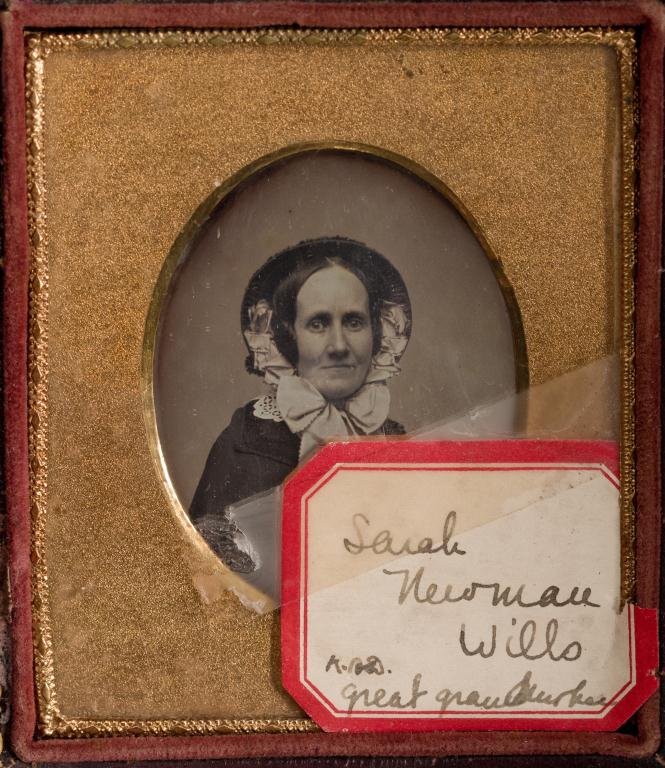 Sarah
Newman
Wills
great grandmother